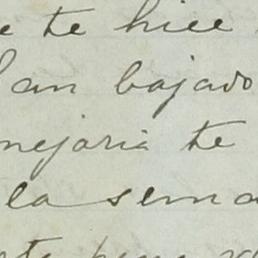 te hice
an bajado
nejaria te
la sema